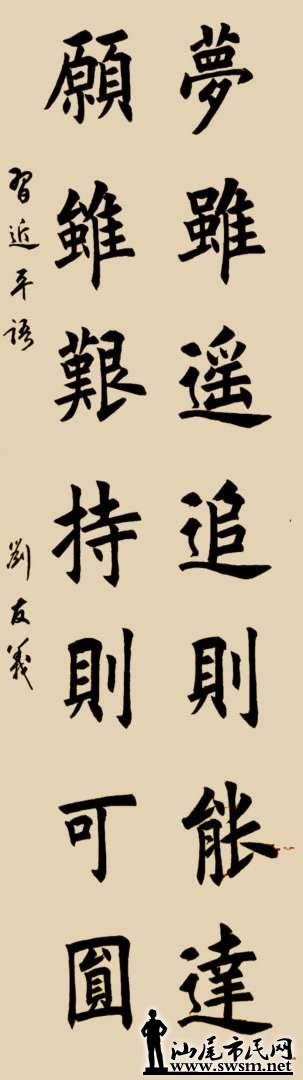 夢雖遥追則能達
願雖艱持則可圓
習近平語
劉友義
汕尾市民网
www.swsm.net